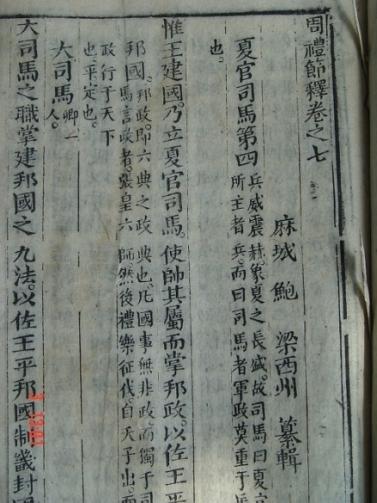 周禮節釋卷之七
麻城鮑 梁西州 纂輯
夏官司馬第四
兵威震赫。象夏之長盛。故司馬曰夏
所主者兵。而曰司馬者軍政莫重于
也。
惟王建國。乃立夏官司馬。使帥其屬而掌邦政。以佐王平
邦國。
邦政。即六典之政典也。凡國事無非政。而獨于司
馬言政者。張皇六師然後禮樂征伐。自天子出。而
政行于天下
也。平定也。
大司馬
卿一
人。
大司馬之職掌建邦國之九法。以佐王平邦國制畿封